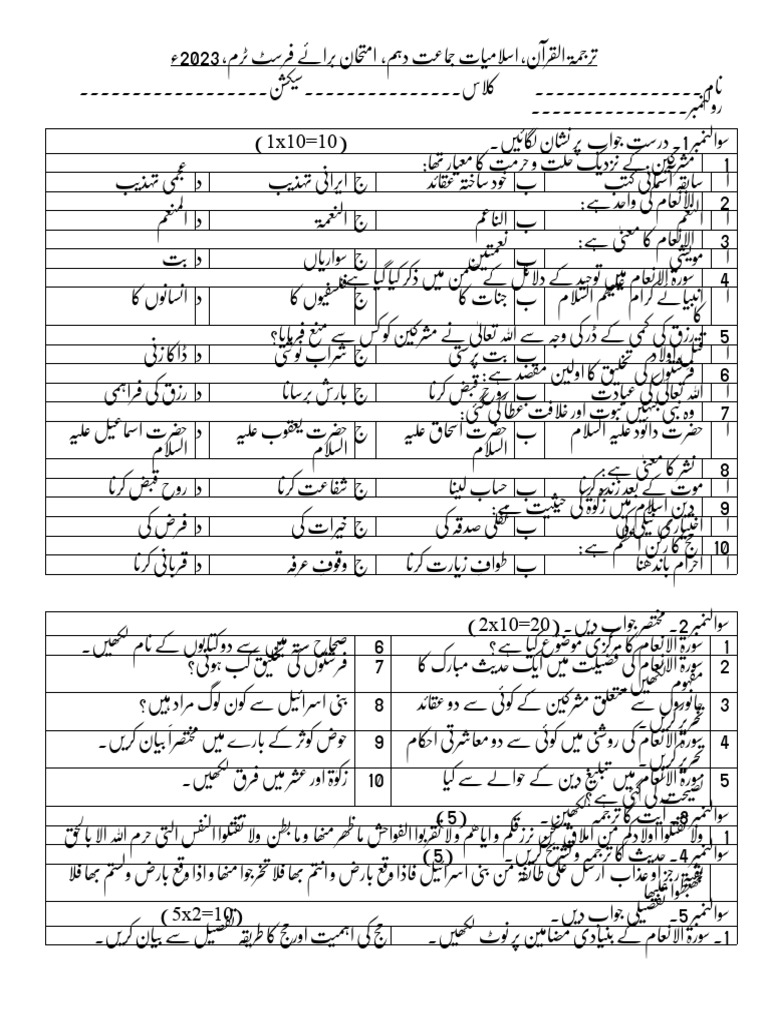 ترجمۃ القرآن، اسلامیات جماعت دہم، امتحان برائے فرسٹ ٹرم، 2023ء
نام ----------------- کلاس --------------- سیکشن ------------------
رولنمبر ---------------
سوالنمبر 1۔ درست جواب پر نشان لگائیں۔ (1x10=10)
1 مشرکین کے نزدیک حلت و حرمت کا معیار تھا:
ا سابقہ آسمانی کتب ب خود ساختہ عقائد ج ایرانی تہذیب د عجمی تہذیب
2 الانعام کی واحد ہے:
ا النعم ب الناعم ج النعمۃ د المنعم
3 الانعام کا معنیٰ ہے:
ا مویشی ب نعمتیں ج سواریاں د بت
4 سورۃ الانعام میں توحید کے دلائل کے ضمن میں ذکر کیا گیا ہے:
ا انبیائے کرام علیھم السلام کا ب جنات کا ج فلسفیوں کا د انسانوں کا
5 رزق کی کمی کے ڈر کی وجہ سے اللہ تعالیٰ نے مشرکین کو کس سے منع فرمایا؟
ا قتل اولاد ب بت پرستی ج شراب نوشی د ڈاکا زنی
6 فرشتوں کی تخلیق کا اولین مقصد ہے:
ا اللہ تعالیٰ کی عبادت ب روح قبض کرنا ج بارش برسانا د رزق کی فراہمی
7 وہ نبی جنہیں نبوت اور خلافت عطا کی گئی:
ا حضرت دائود علیہ السلام ب حضرت اسحاق علیہ السلام ج حضرت یعقوب علیہ السلام د حضرت اسماعیل علیہ السلام
8 نشر کا معنیٰ ہے:
ا موت کے بعد زندہ کرنا ب حساب لینا ج شفاعت کرنا د روح قبض کرنا
9 دین اسلام میں زکوٰۃ کی حیثیت ہے:
ا اختیاری نیکی کی ب نفلی صدقہ کی ج خیرات کی د فرض کی
10 حج کا رکن اعظم ہے:
ا احرام باندھنا ب طواف زیارت کرنا ج وقوف عرفہ د قربانی کرنا
سوالنمبر 2۔ مختصر جواب دیں۔ (2x10=20)
1 سورۃ الانعام کا مرکزی موضوع کیا ہے؟ 6 صحاح ستہ میں سے دو کتابوں کے نام لکھیں۔
2 سورۃ الانعام کی فضیلت میں ایک حدیث مبارک کا مفہوم لکھیں۔ 7 فرشتوں کی تخلیق کب ہوئی؟
3 جانوروں سے متعلق مشرکین کے کوئی سے دو عقائد تحریر کریں۔ 8 بنی اسرائیل سے کون لوگ مراد ہیں؟
4 سورۃ الانعام کی روشنی میں کوئی سے دو معاشرتی احکام تحریر کریں۔ 9 حوض کوثر کے بارے میں مختصراً بیان کریں۔
5 سورۃ الانعام میں تبلیغ دین کے حوالے سے کیا نصیحت کی گئی ہے؟ 10 زکوٰۃ اور عشر میں فرق لکھیں۔
سوالنمبر 3۔ آیت کا ترجمہ لکھیں۔ (5)
1 ولا تقتلوا اولادکم من املاق نحن نرزقکم وایاھم ولا تقربوا الفواحش ما ظھر منھا وما بطن ولا تقتلوا النفس التی حرم اللہ الا بالحق
سوالنمبر 4۔ حدیث کا ترجمہ و تشریح کریں۔ (5)
بقیۃ رجز او عذاب ارسل علی طائفۃ من بنی اسرائیل فاذا وقع بارض و انتم بھا فلا تخرجوا منھا واذا وقع بارض ولستم بھا فلا
تھبطوا علیھا
سوالنمبر 5۔ تفصیلی جواب دیں۔ (5x2=10)
1۔ سورۃ الانعام کے بنیادی مضامین پر نوٹ لکھیں۔ حج کی اہمیت اور حج کا طریقہ تفصیل سے بیان کریں۔